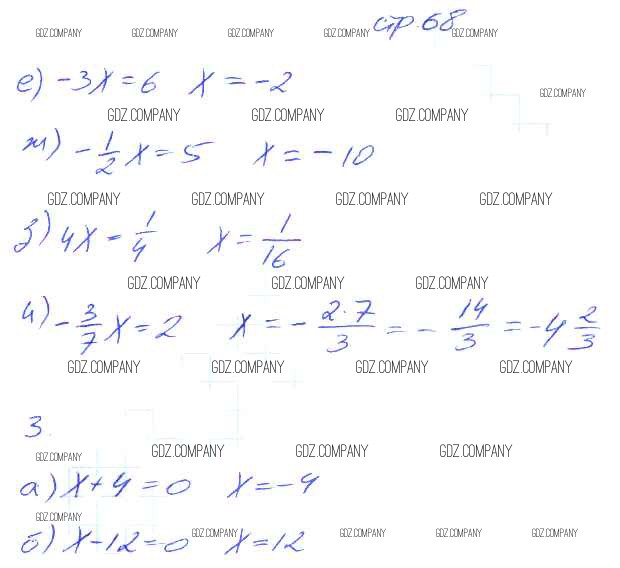 стр. 68
GDZ.COMPANY GDZ.COMPANY GDZ.COMPANY GDZ.COMPANY GDZ.COMPANY
е) -3x = 6 x = -2
GDZ.COMPANY
GDZ.COMPANY GDZ.COMPANY GDZ.COMPANY
ж) -1/2 x = 5 x = -10
GDZ.COMPANY GDZ.COMPANY GDZ.COMPANY GDZ.COMPANY
з) 4x = 1/4 x = 1/16
GDZ.COMPANY GDZ.COMPANY GDZ.COMPANY
и) -3/7 x = 2 x = - 2·7/3 = - 14/3 = -4 2/3
GDZ.COMPANY GDZ.COMPANY GDZ.COMPANY GDZ.COMPANY
3.
GDZ.COMPANY GDZ.COMPANY GDZ.COMPANY GDZ.COMPANY
а) x + 4 = 0 x = -4
GDZ.COMPANY
б) x - 12 = 0 x = 12
GDZ.COMPANY GDZ.COMPANY GDZ.COMPANY GDZ.COMPANY